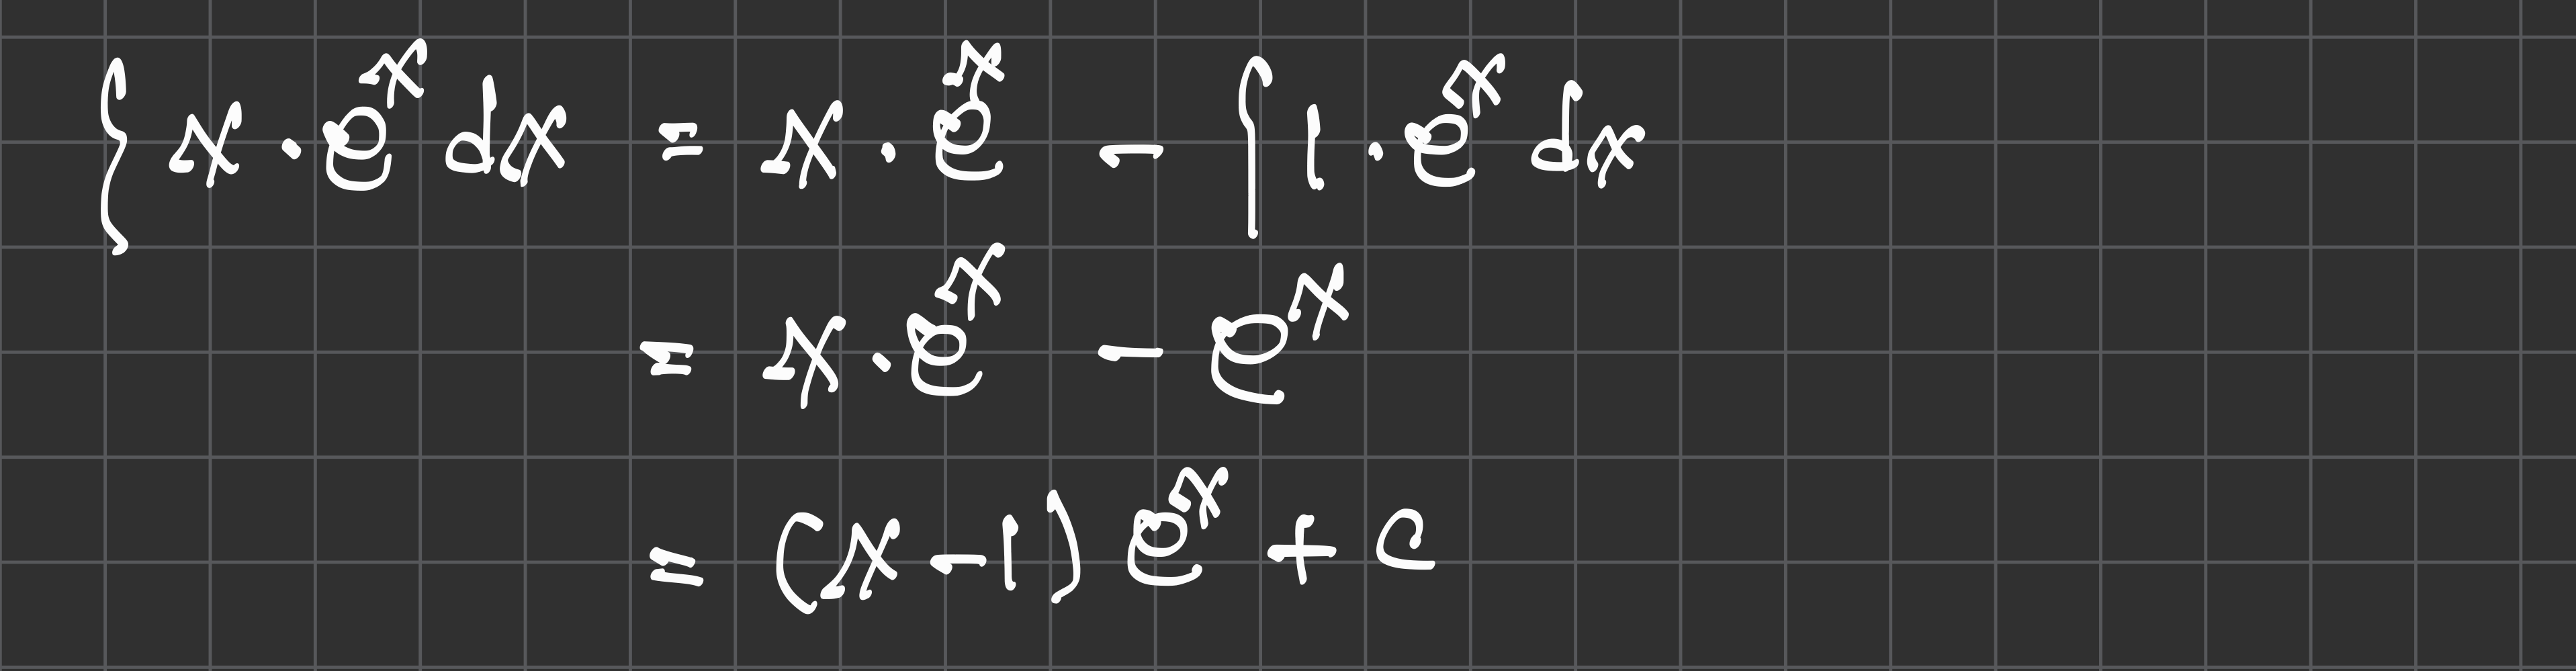 ∫ x · e^x dx = x · e^x − ∫ 1 · e^x dx
= x · e^x − e^x
= (x − 1) e^x + c